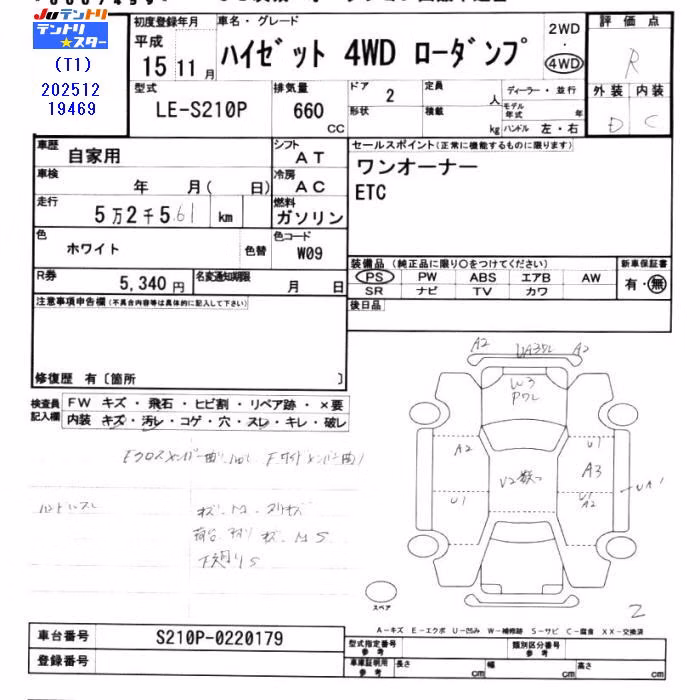 JUテントリ
テントリ★スター
(T1)
202512
19469
初度登録年月
平成
15 11 月
車名・グレード
ハイゼット 4WD ローダンプ
2WD
・
4WD
評価点
R
外装 内装
D C
型式
LE-S210P
排気量
660
CC
ドア 2
形状
定員 人
積載 kg
ディーラー・並行
モデル年式 年
ハンドル 左・右
車歴
自家用
シフト
AT
車検
年 月( 日)
冷房
AC
走行
5万2千561 km
燃料
ガソリン
色
ホワイト
色替
色コード
W09
R券
5,340円
名変通知期限
月 日
セールスポイント(正常に機能するものに限ります)
ワンオーナー
ETC
装備品 (純正品に限り○をつけてください)
PS PW ABS エアB AW
SR ナビ TV カワ
新車保証書
有・無
後日品
注意事項申告欄(不具合内容等は具体的に記入して下さい)
修復歴 有〔箇所 〕
検査員記入欄
FW キズ・飛石・ヒビ割・リペア跡・×要
内装 キズ・汚レ・コゲ・穴・スレ・キレ・破レ
ハンドルスレ
A2
A2
W3
A2
U1
A3
U1
U1
A2
UA1
スペア
2
A-キズ E-エクボ U-凹み W-補修跡 S-サビ C-腐食 XX-交換済
車台番号
S210P-0220179
登録番号
型式指定番号
参考
類別区分番号
参考
車庫証明用
参考
長さ cm
幅 cm
高さ cm